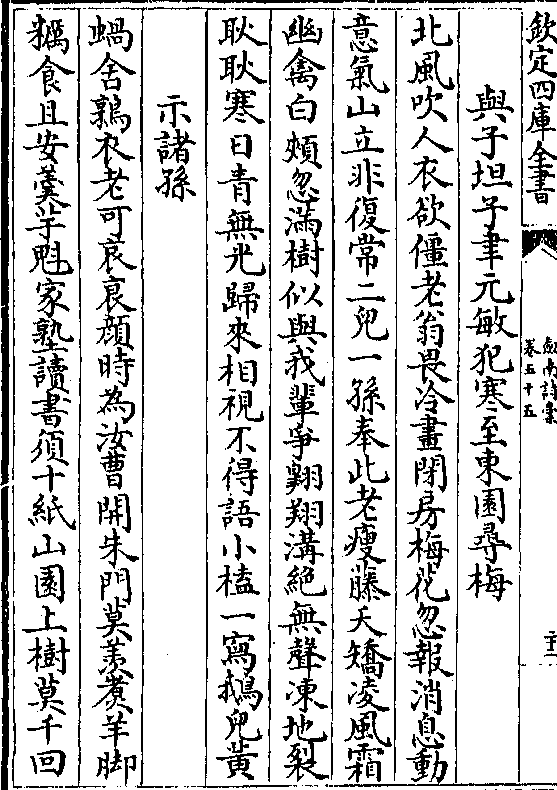 欽定四庫全書
劍南詩集
卷五十五
與子坦子聿元敏犯寒至東園尋梅
北風吹人衣欲僵老翁畏冷晝閉房梅花忽報消息動
意氣山立非復常二兒一孫奉此老瘦藤夭矯凌風霜
幽禽白頰忽滿樹似與我輩爭翺翔溝絕無聲凍地裂
耿耿寒日青無光歸來相視不得語小榼一寫鵝兒黃
示諸孫
蝸舍鶉衣老可哀衰顔時為汝曹開朱門莫羡煮羊脚
糲食且安羹芋魁家塾讀書須十紙山園上樹莫千回